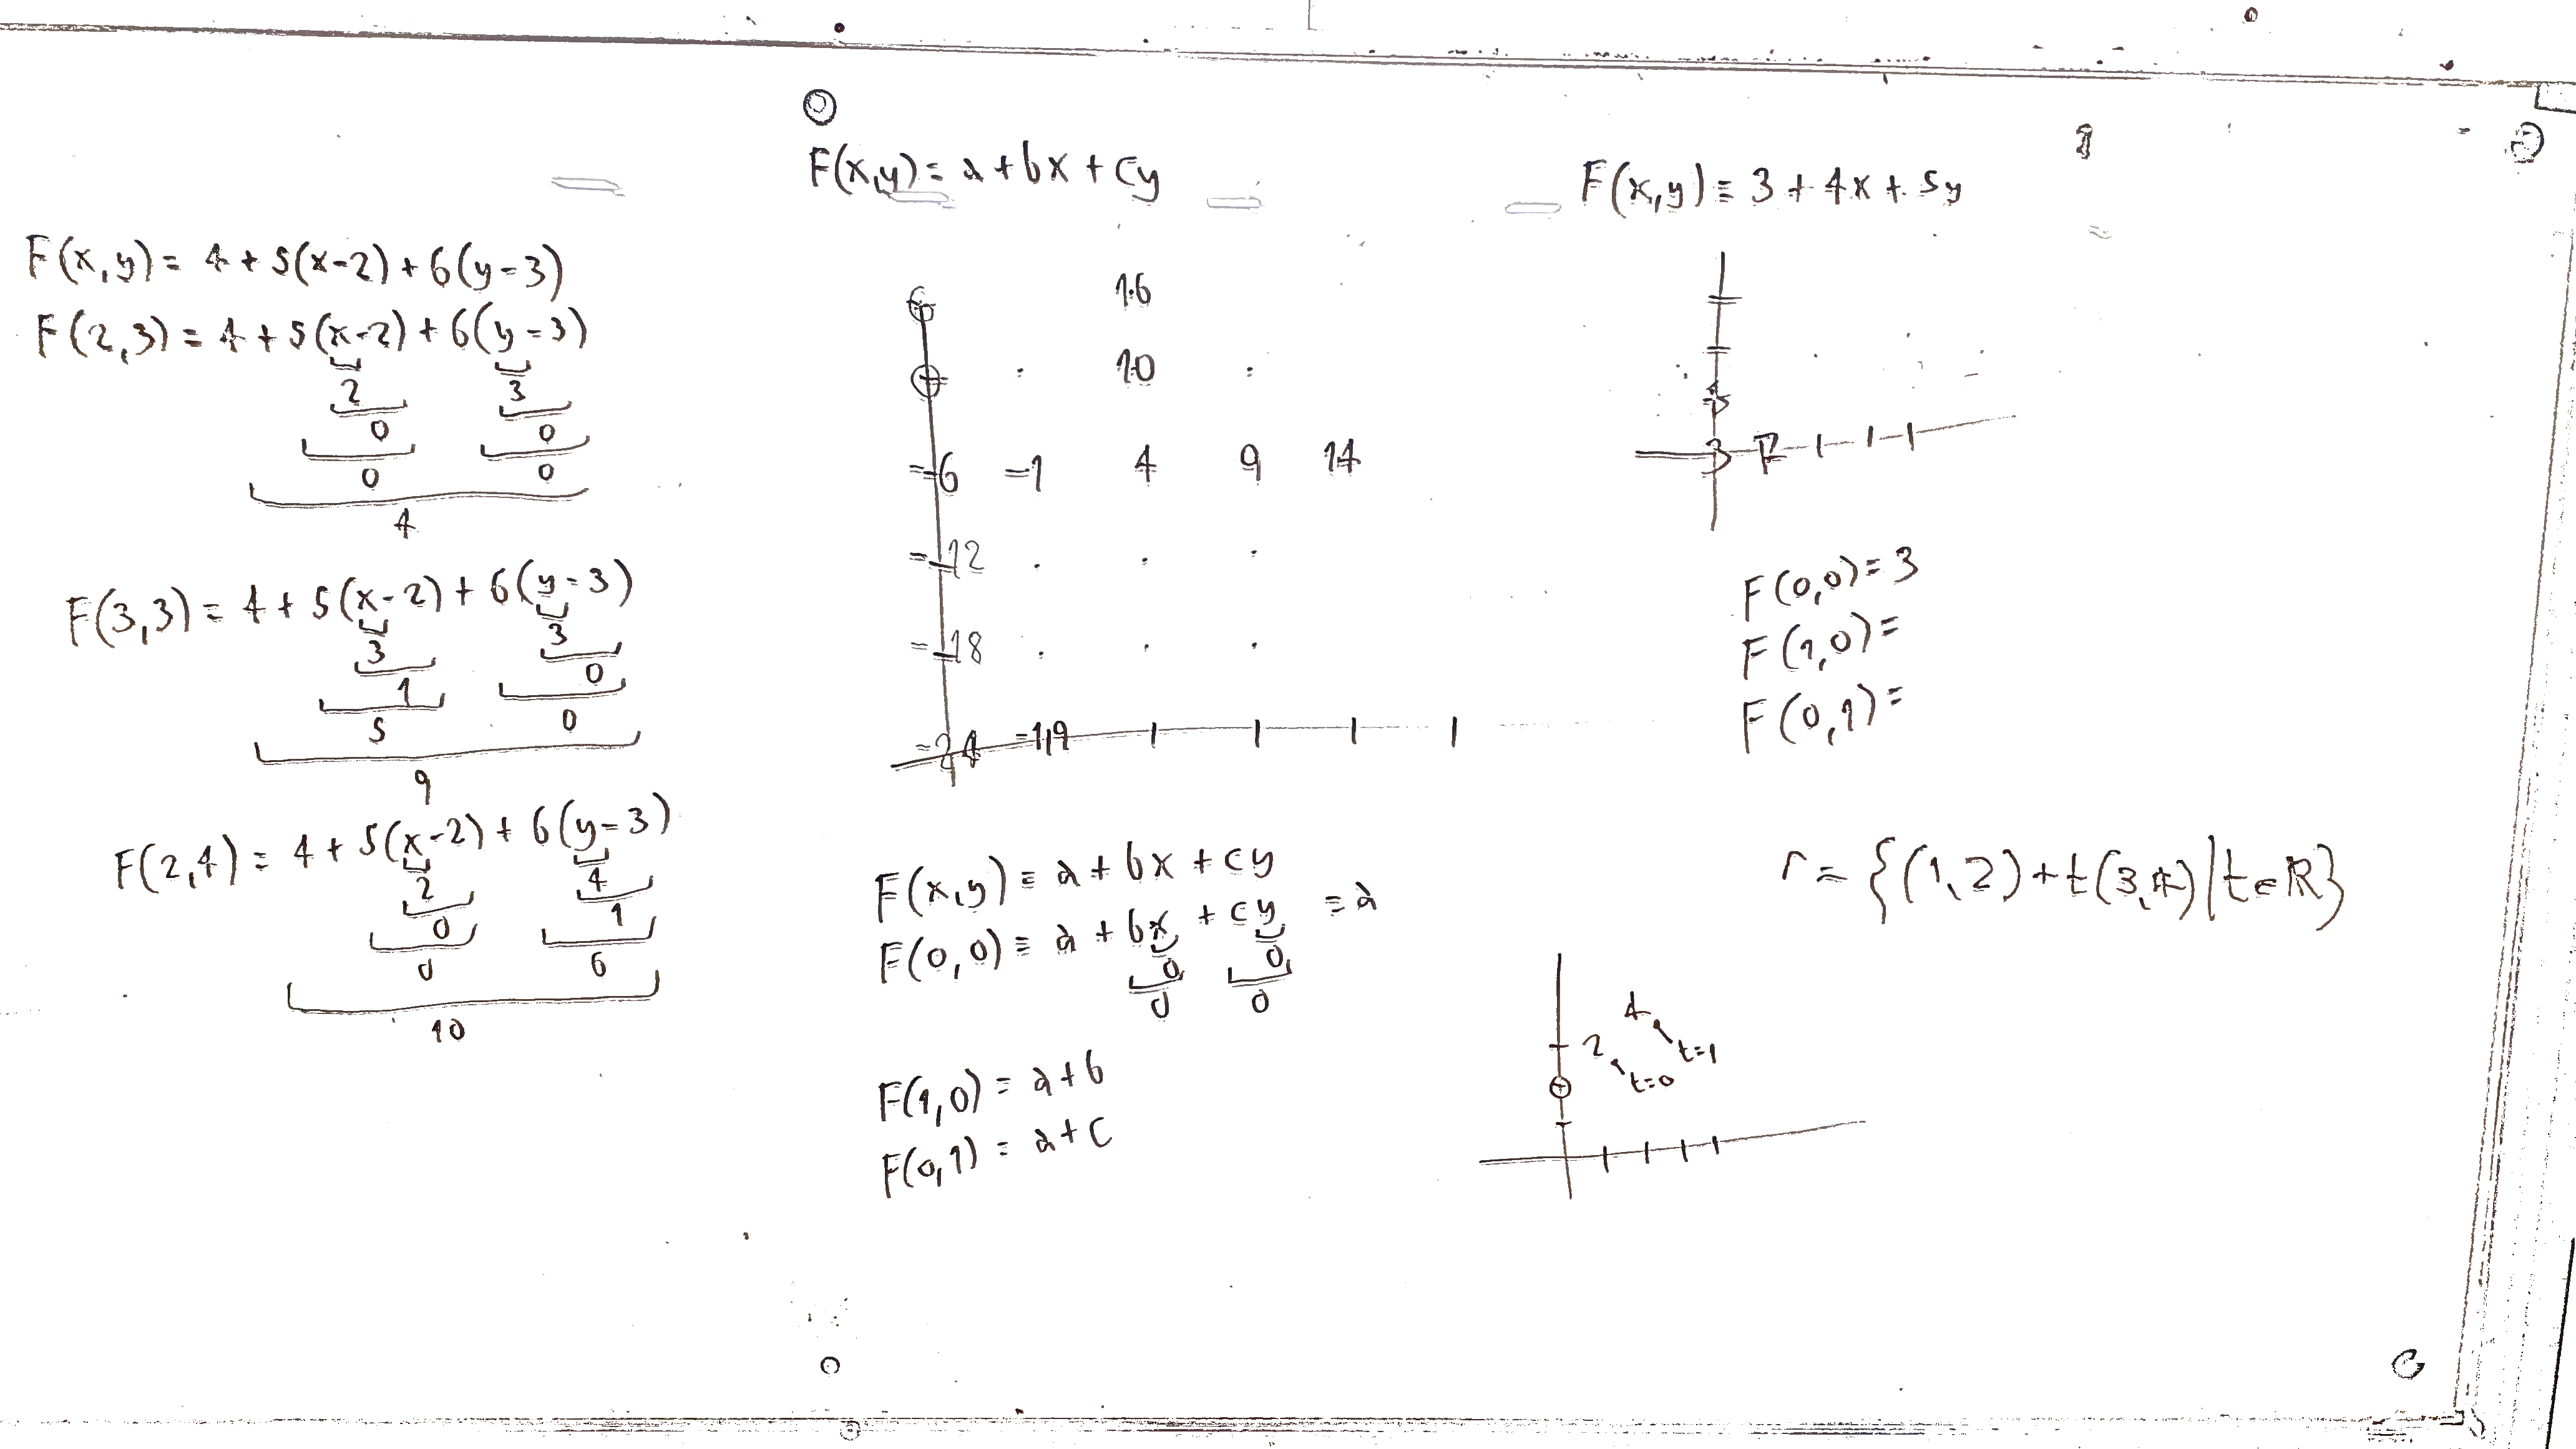 F(x,y) = 4 + 5(x-2) + 6(y-3)
F(2,3) = 4 + 5(x-2) + 6(y-3)
2 3
0 0
0 0
4
F(3,3) = 4 + 5(x-2) + 6(y-3)
3 3
1 0
5 0
9
F(2,4) = 4 + 5(x-2) + 6(y-3)
2 4
0 1
0 6
10
F(x,y) = a + bx + cy
16
10
-6 -1 4 9 14
-12
-18
-24 -19
F(x,y) = a + bx + cy
F(0,0) = a + bx + cy = a
0 0
0 0
F(1,0) = a+b
F(0,1) = a+c
F(x,y) = 3 + 4x + 5y
3
F(0,0) = 3
F(1,0) =
F(0,1) =
r = {(1,2)+t(3,4)|t∈R}
4
t=1
2
t=0